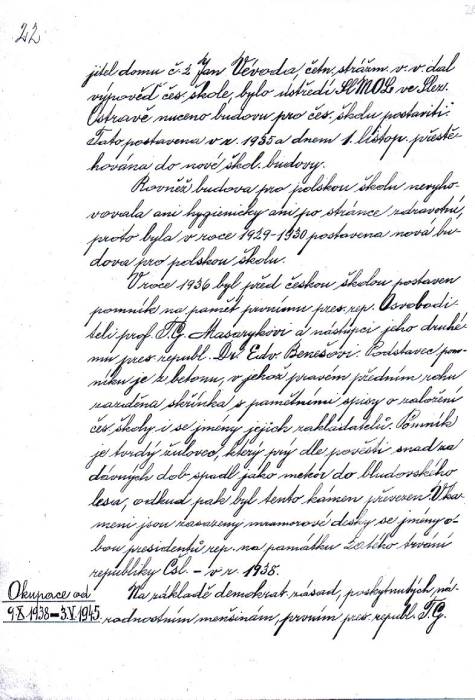 22
jitel domu č. 2 Jan Vévoda, četn. strážm. v. v. dal
výpověď čes. škole, bylo ústředí Sl.M.O.L. ve Slez.
Ostravě nuceno budovu pro čes. školu postaviti.
Tato postavena v r. 1935 a dnem 1. listop. přestě-
hována do nové škol. budovy.
Rovněž budova pro polskou školu nevyho-
vovala ani hygienicky ani po stránce zdravotní,
proto byla v roce 1929-1930 postavena nová bu-
dova pro polskou školu.
V roce 1936 byl před českou školou postaven
pomník na paměť prvnímu pres. rep. Osvobodi-
teli prof. T. G. Masarykovi a nástupci jeho druhé-
mu pres. republ. Dr. Edv. Benešovi. Podstavec pom-
níku je z betonu, v jehož pravém předním rohu
zazděna skřínka s pamětními spisy o založení
čes. školy i se jmény jejich zakladatelů. Pomník
je tvrdý žulovec, který prý dle pověsti snad za
dávných dob spadl jako metéor do bludovského
lesa, odkud pak byl tento kámen převezen. V ka-
meni jsou zasazeny mramorové desky se jmény o-
bou presidentů rep. na památku 20tého trvání
republiky Čsl. – v r. 1938.
Okupace od
9.X.1938–3.V.1945.
Na základě demokrat. zásad, poskytnutých, ná-
rodnostním menšinám, prvním pres. republ. T. G.